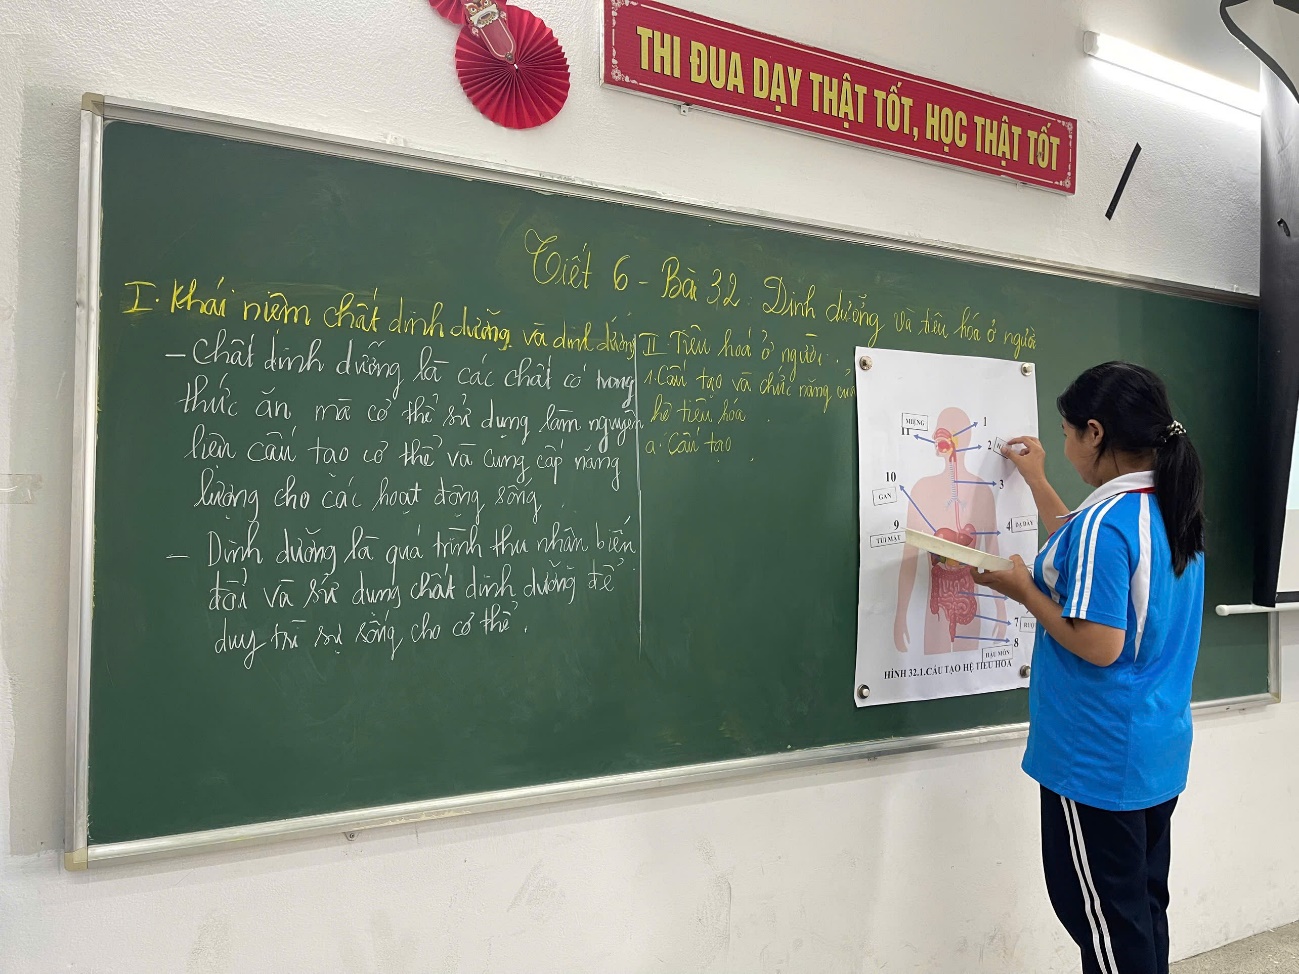 THI ĐUA DẠY THẬT TỐT, HỌC THẬT TỐT
Tiết 6 - Bài 32: Dinh dưỡng và tiêu hóa ở người
I. Khái niệm chất dinh dưỡng và dinh dưỡng
- Chất dinh dưỡng là các chất có trong
thức ăn mà cơ thể sử dụng làm nguyên
liệu cấu tạo cơ thể và cung cấp năng
lượng cho các hoạt động sống
- Dinh dưỡng là quá trình thu nhận biến
đổi và sử dụng chất dinh dưỡng để
duy trì sự sống cho cơ thể.
II. Tiêu hoá ở người.
1. Cấu tạo và chức năng của
hệ tiêu hóa
a. Cấu tạo
1
MIỆNG
11
2
10
3
GAN
9
4
DẠ DÀY
TÚI MẬT
7
8
HẬU MÔN
HÌNH 32.1.CẤU TẠO HỆ TIÊU HÓA